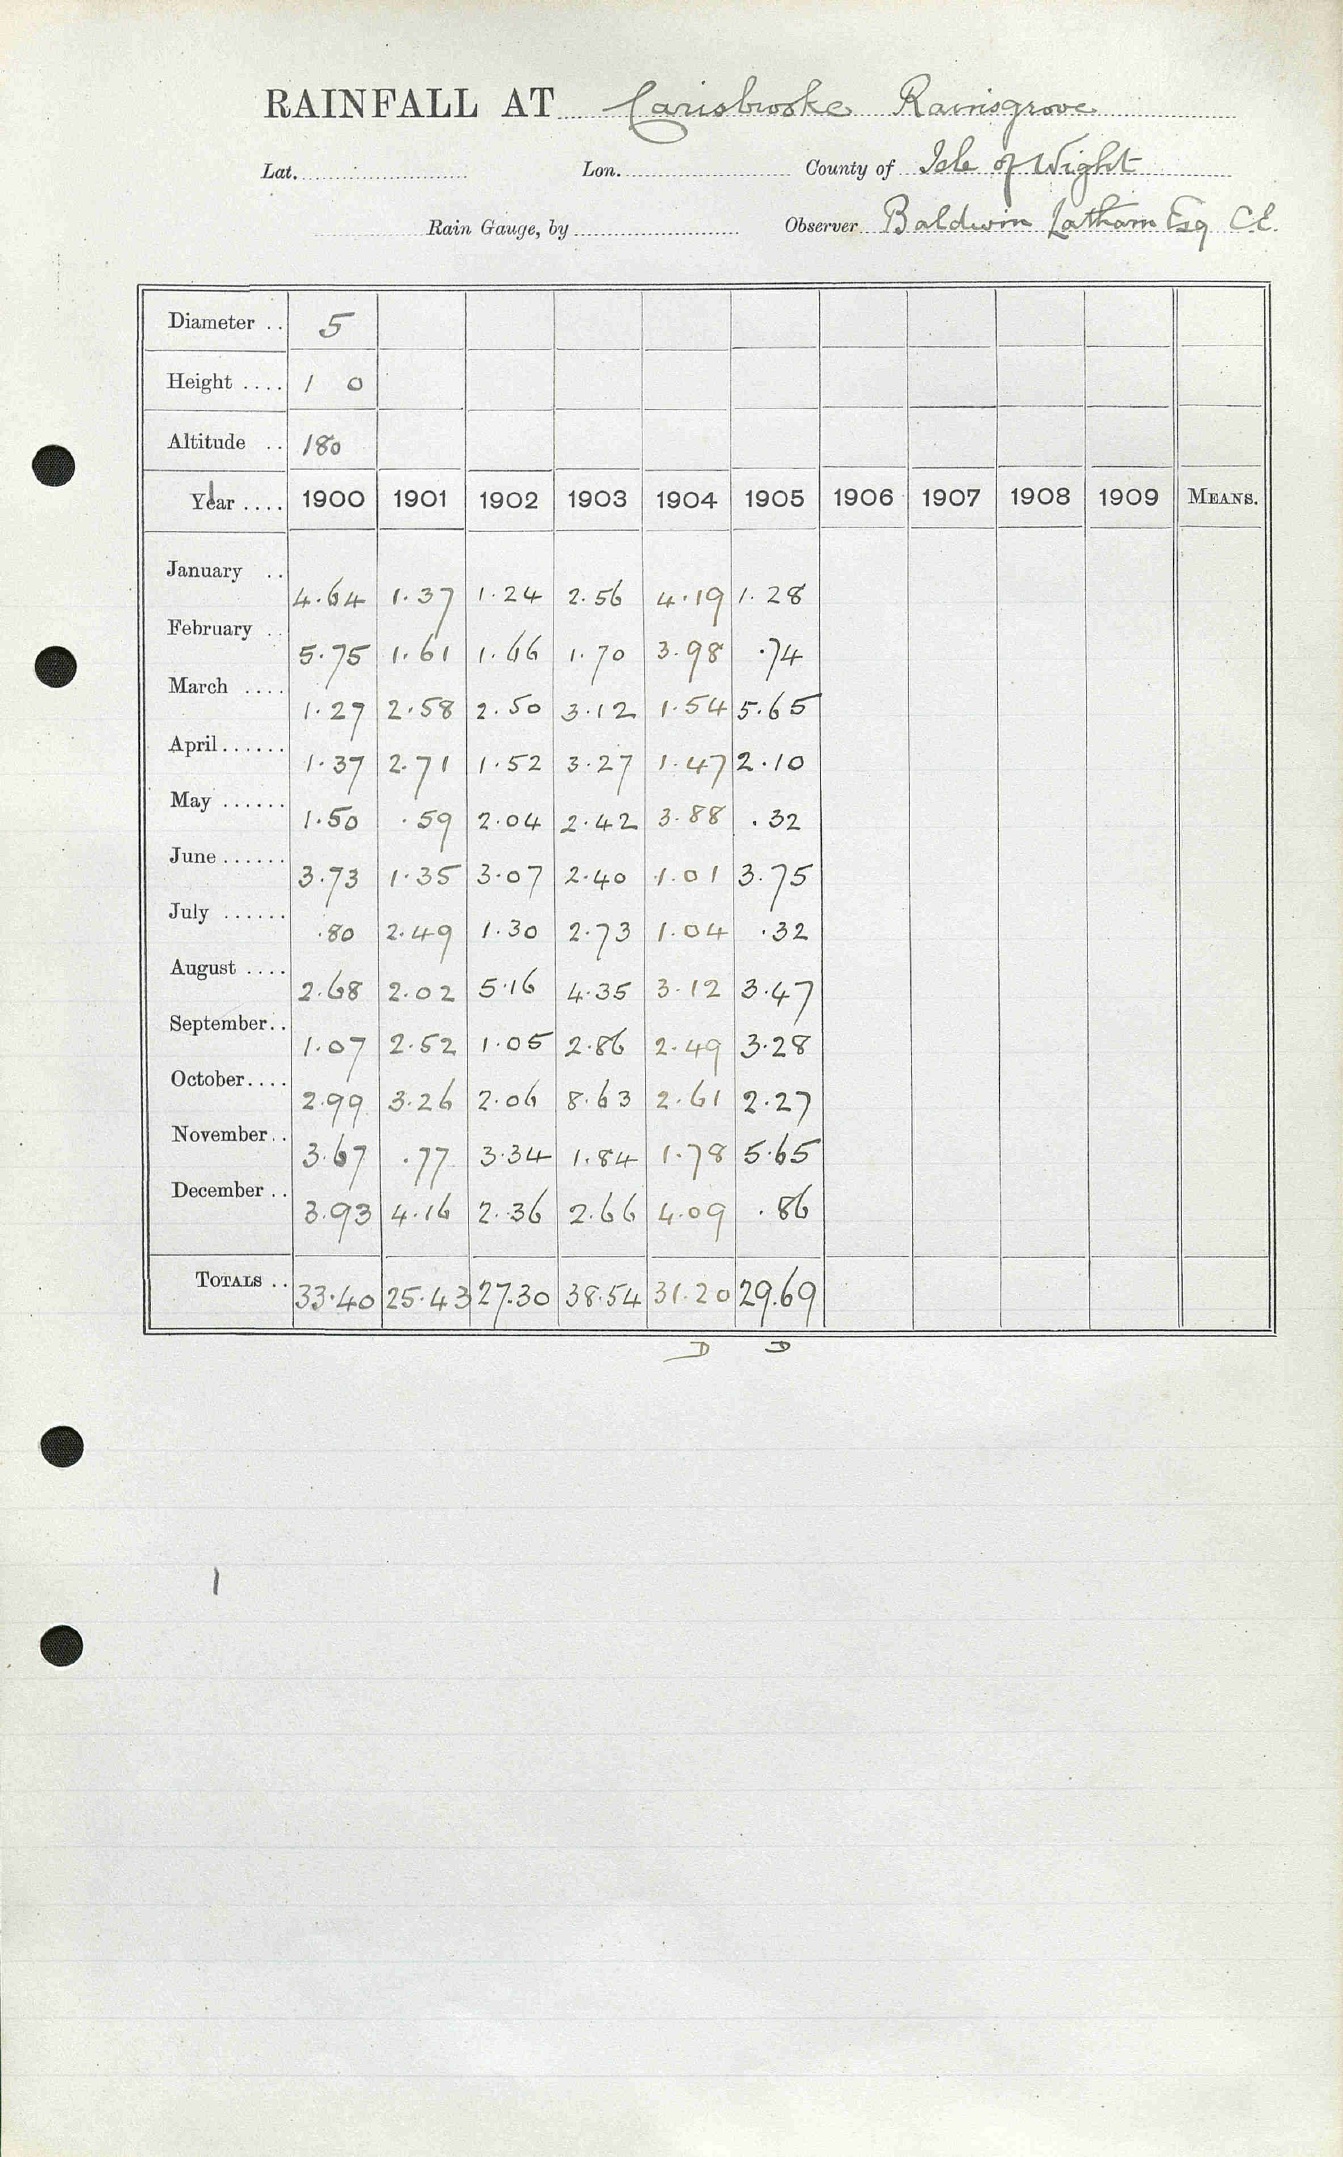 RAINFALL AT Carisbrooke Rainsgrove
Lat. Lon. County of Isle of Wight
Rain Gauge, by Observer Baldwin Latham Esq C.E.
Diameter .. 5
Height .... 1 0
Altitude .. 180
Year .... 1900 1901 1902 1903 1904 1905 1906 1907 1908 1909 MEANS.
January .. 4.64 1.37 1.24 2.56 4.19 1.28
February .. 5.75 1.61 1.66 1.70 3.98 .74
March .... 1.27 2.58 2.50 3.12 1.54 5.65
April...... 1.37 2.71 1.52 3.27 1.47 2.10
May ...... 1.50 .59 2.04 2.42 3.88 .32
June ...... 3.73 1.35 3.07 2.40 1.01 3.75
July ...... .80 2.49 1.30 2.73 1.04 .32
August .... 2.68 2.02 5.16 4.35 3.12 3.47
September.. 1.07 2.52 1.05 2.86 2.49 3.28
October.... 2.99 3.26 2.06 8.63 2.61 2.27
November.. 3.67 .77 3.34 1.84 1.78 5.65
December .. 3.93 4.16 2.36 2.66 4.09 .86
TOTALS .. 33.40 25.43 27.30 38.54 31.20 29.69
D D